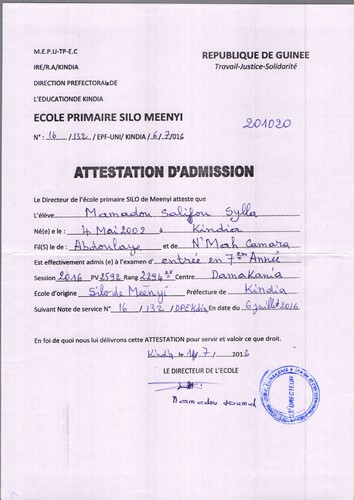 M.E.P.U-TP-E.C
REPUBLIQUE DE GUINEE
IRE/R.A/KINDIA
Travail-Justice-Solidarité
DIRECTION PREFECTORALE DE
L'EDUCATIONDE KINDIA
ECOLE PRIMAIRE SILO MEENYI
201020
N° : 16 /132 / EPF-UNI/ KINDIA /6/7/016
ATTESTATION D'ADMISSION
Le Directeur de l'école primaire SILO de Meenyi atteste que
L'élève Mamadou Salifou Sylla
Né(e) le : 4 Mai 2002 à Kindia
Fil(S) le de : Abdoulaye et de N'Mah Camara
Est effectivement admis (e) à l'examen d' entrée en 7ème Année
Session 2016 PV 2592 Rang 2294 Centre Damakania
Ecole d'origine Silo de Meènyi Préfecture de Kindia
Suivant Note de service N° 16 / 132 / DPEKdia En date du 6 juillet 2016
En foi de quoi nous lui délivrons cette ATTESTATION pour servir et valoir ce que droit.
Kindia le /7/ 2016
LE DIRECTEUR DE L'ECOLE
Mamadou
LE DIRECTEUR